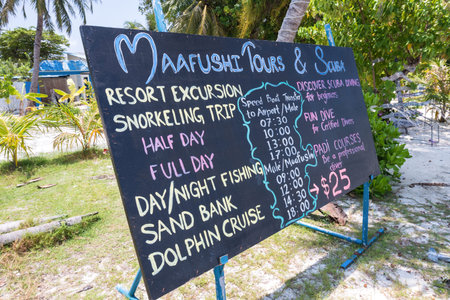 Maafushi Tours & Scuba
RESORT EXCURSION
SNORKELING TRIP
HALF DAY
FULL DAY
DAY/NIGHT FISHING
SAND BANK
DOLPHIN CRUISE
Speed Boat Transfer
to Airport/Male
07:30
10:00
13:00
17:00
Male/Maafushi
09:00
12:00
14:00
18:00
→ $25
DISCOVER SCUBA DIVING
for beginners
FUN DIVE
for Certified Divers
PADI COURSES
be a professional
diver